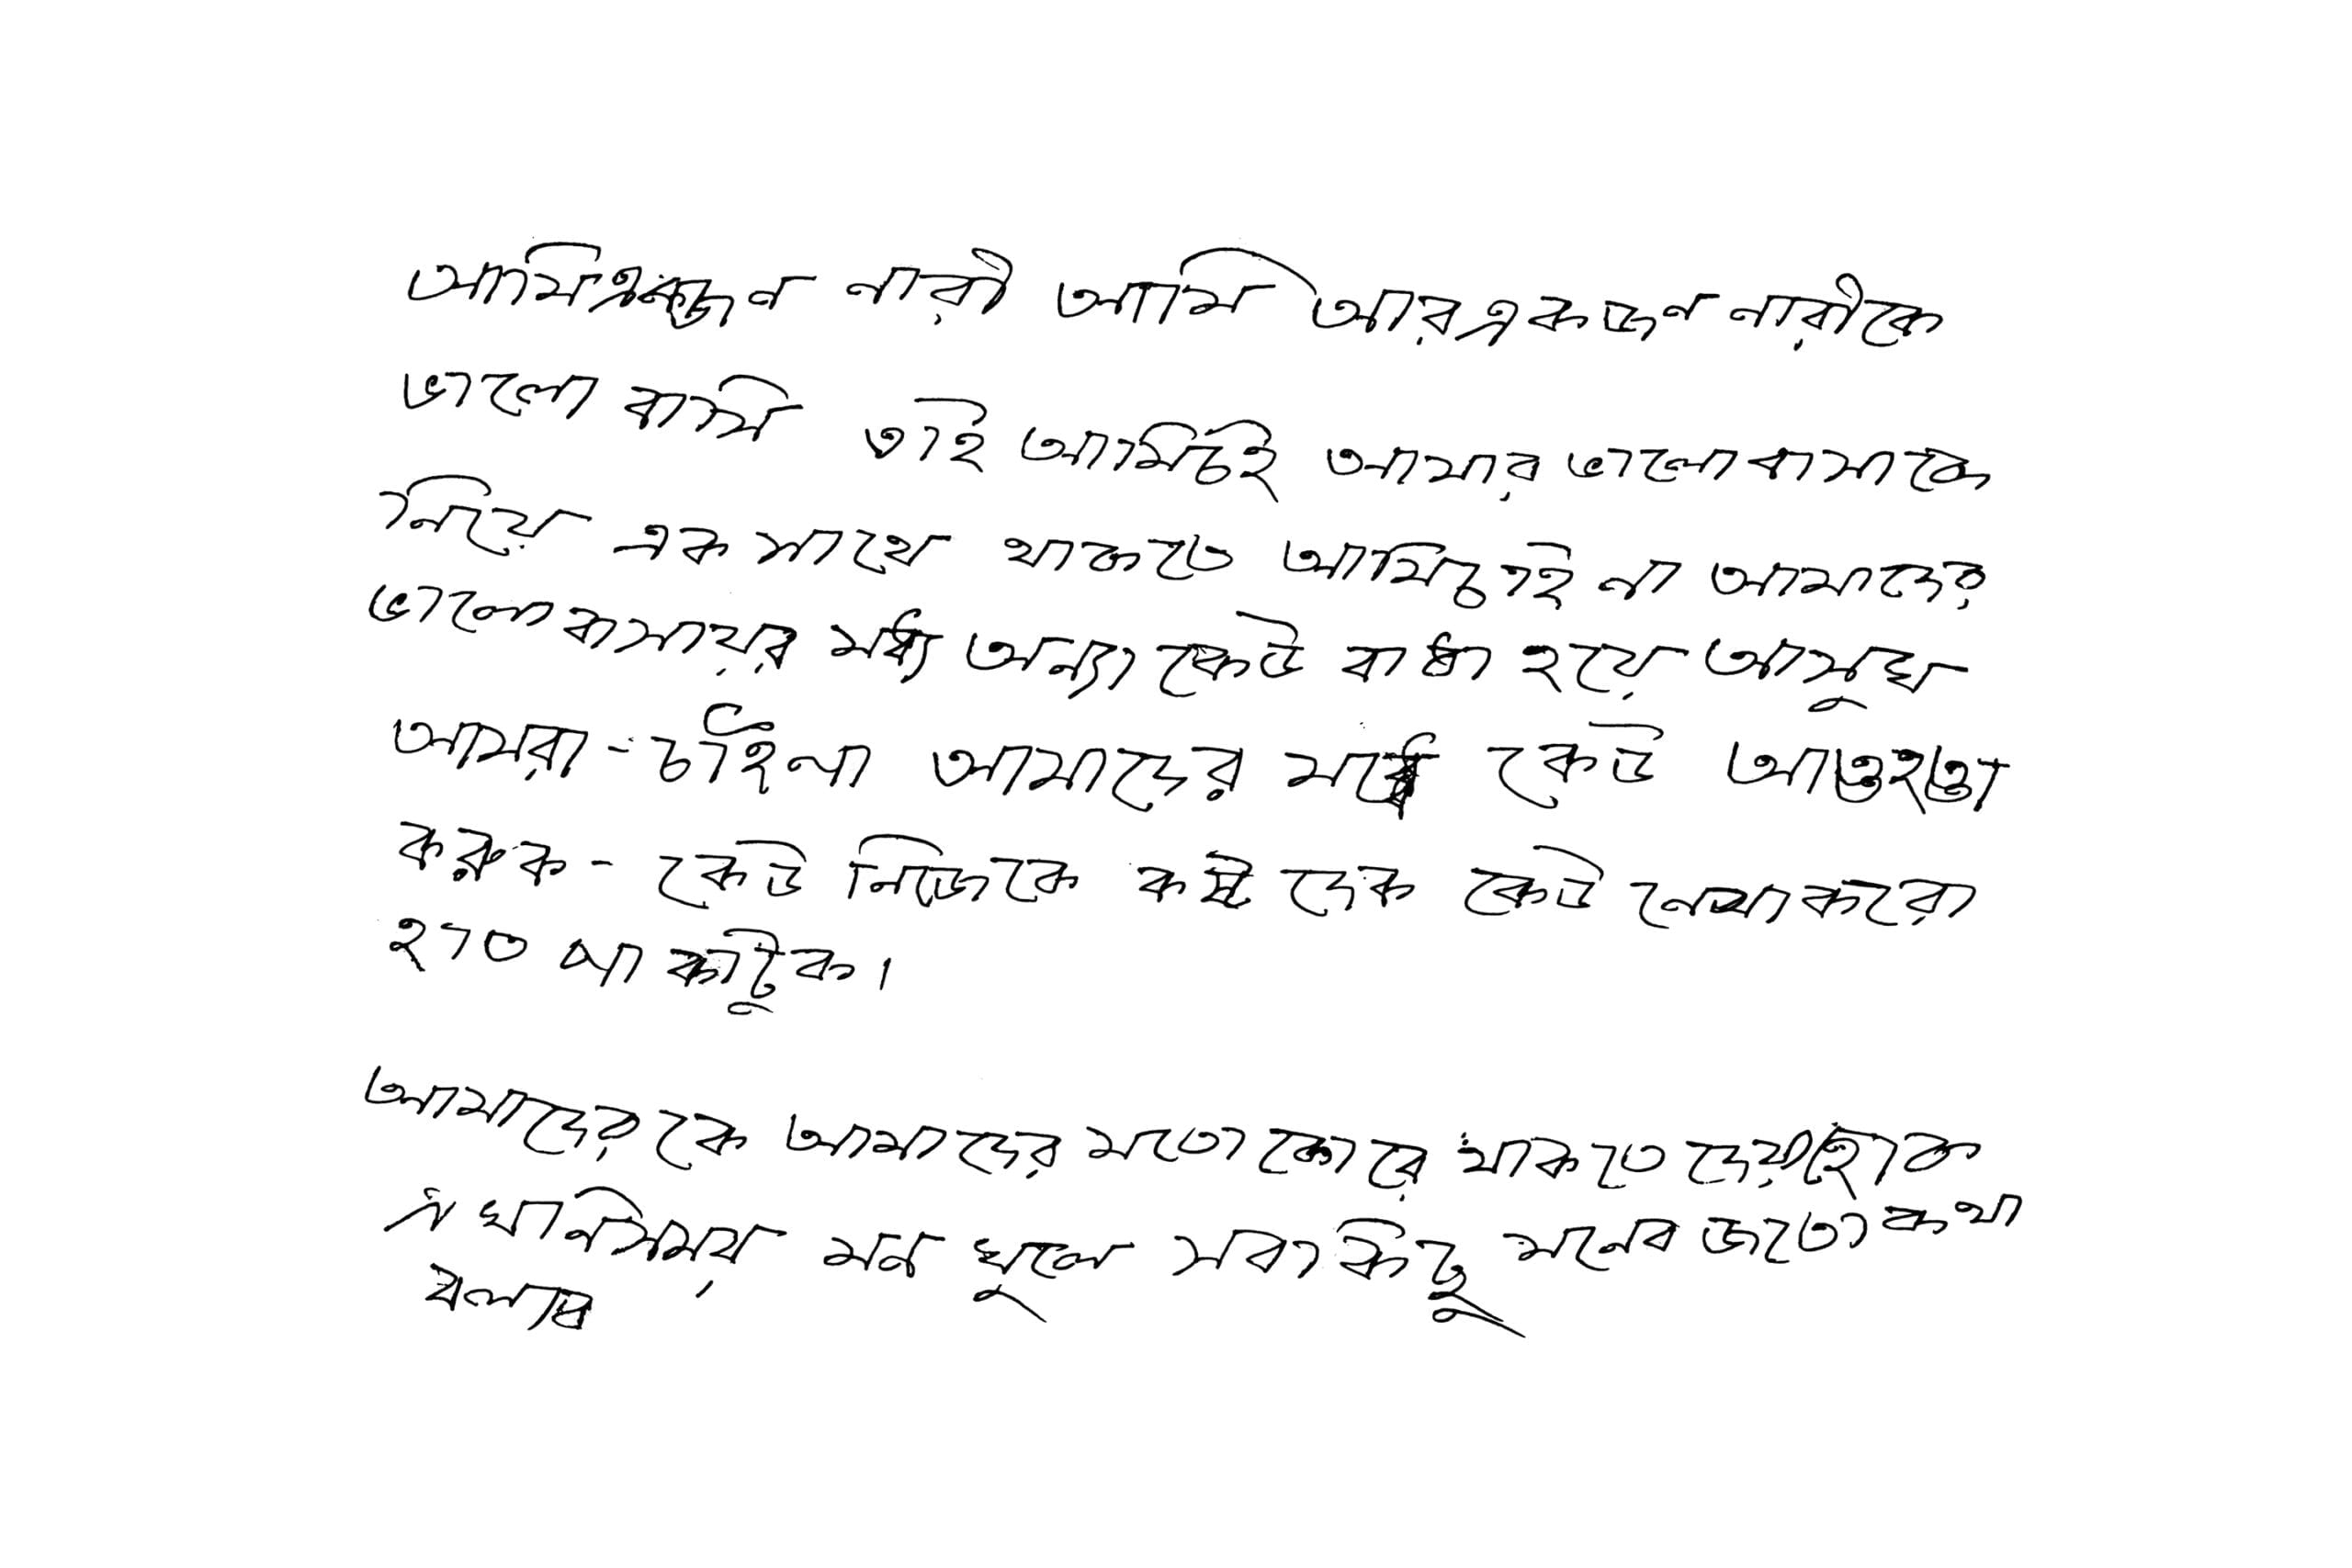 আমি একজন নারী আমি আর একজন নারীকে
ভালো বাসি তাই আমিচাই আমার ভালো বাসাকে
নিয়ে এক সাথে থাকতে আমিচাই না আমাদের
ভালো বাসায়র মধ্যে অন্য কেউ বাধা হয়ে আসুখ
আমরা - চাঁইনা আমাদের মধ্যে কেউ আত্তহত্তা
করুক - কেউ নিজেকে কষ্ট দেক কেউ নেষা করো
হাত না কাটুক।
আমাদের কে আমাদের মতো কোরে থাকতে দেয়াহোক
মন খুলে সবাকিছু মনের জতো কথা
বলার